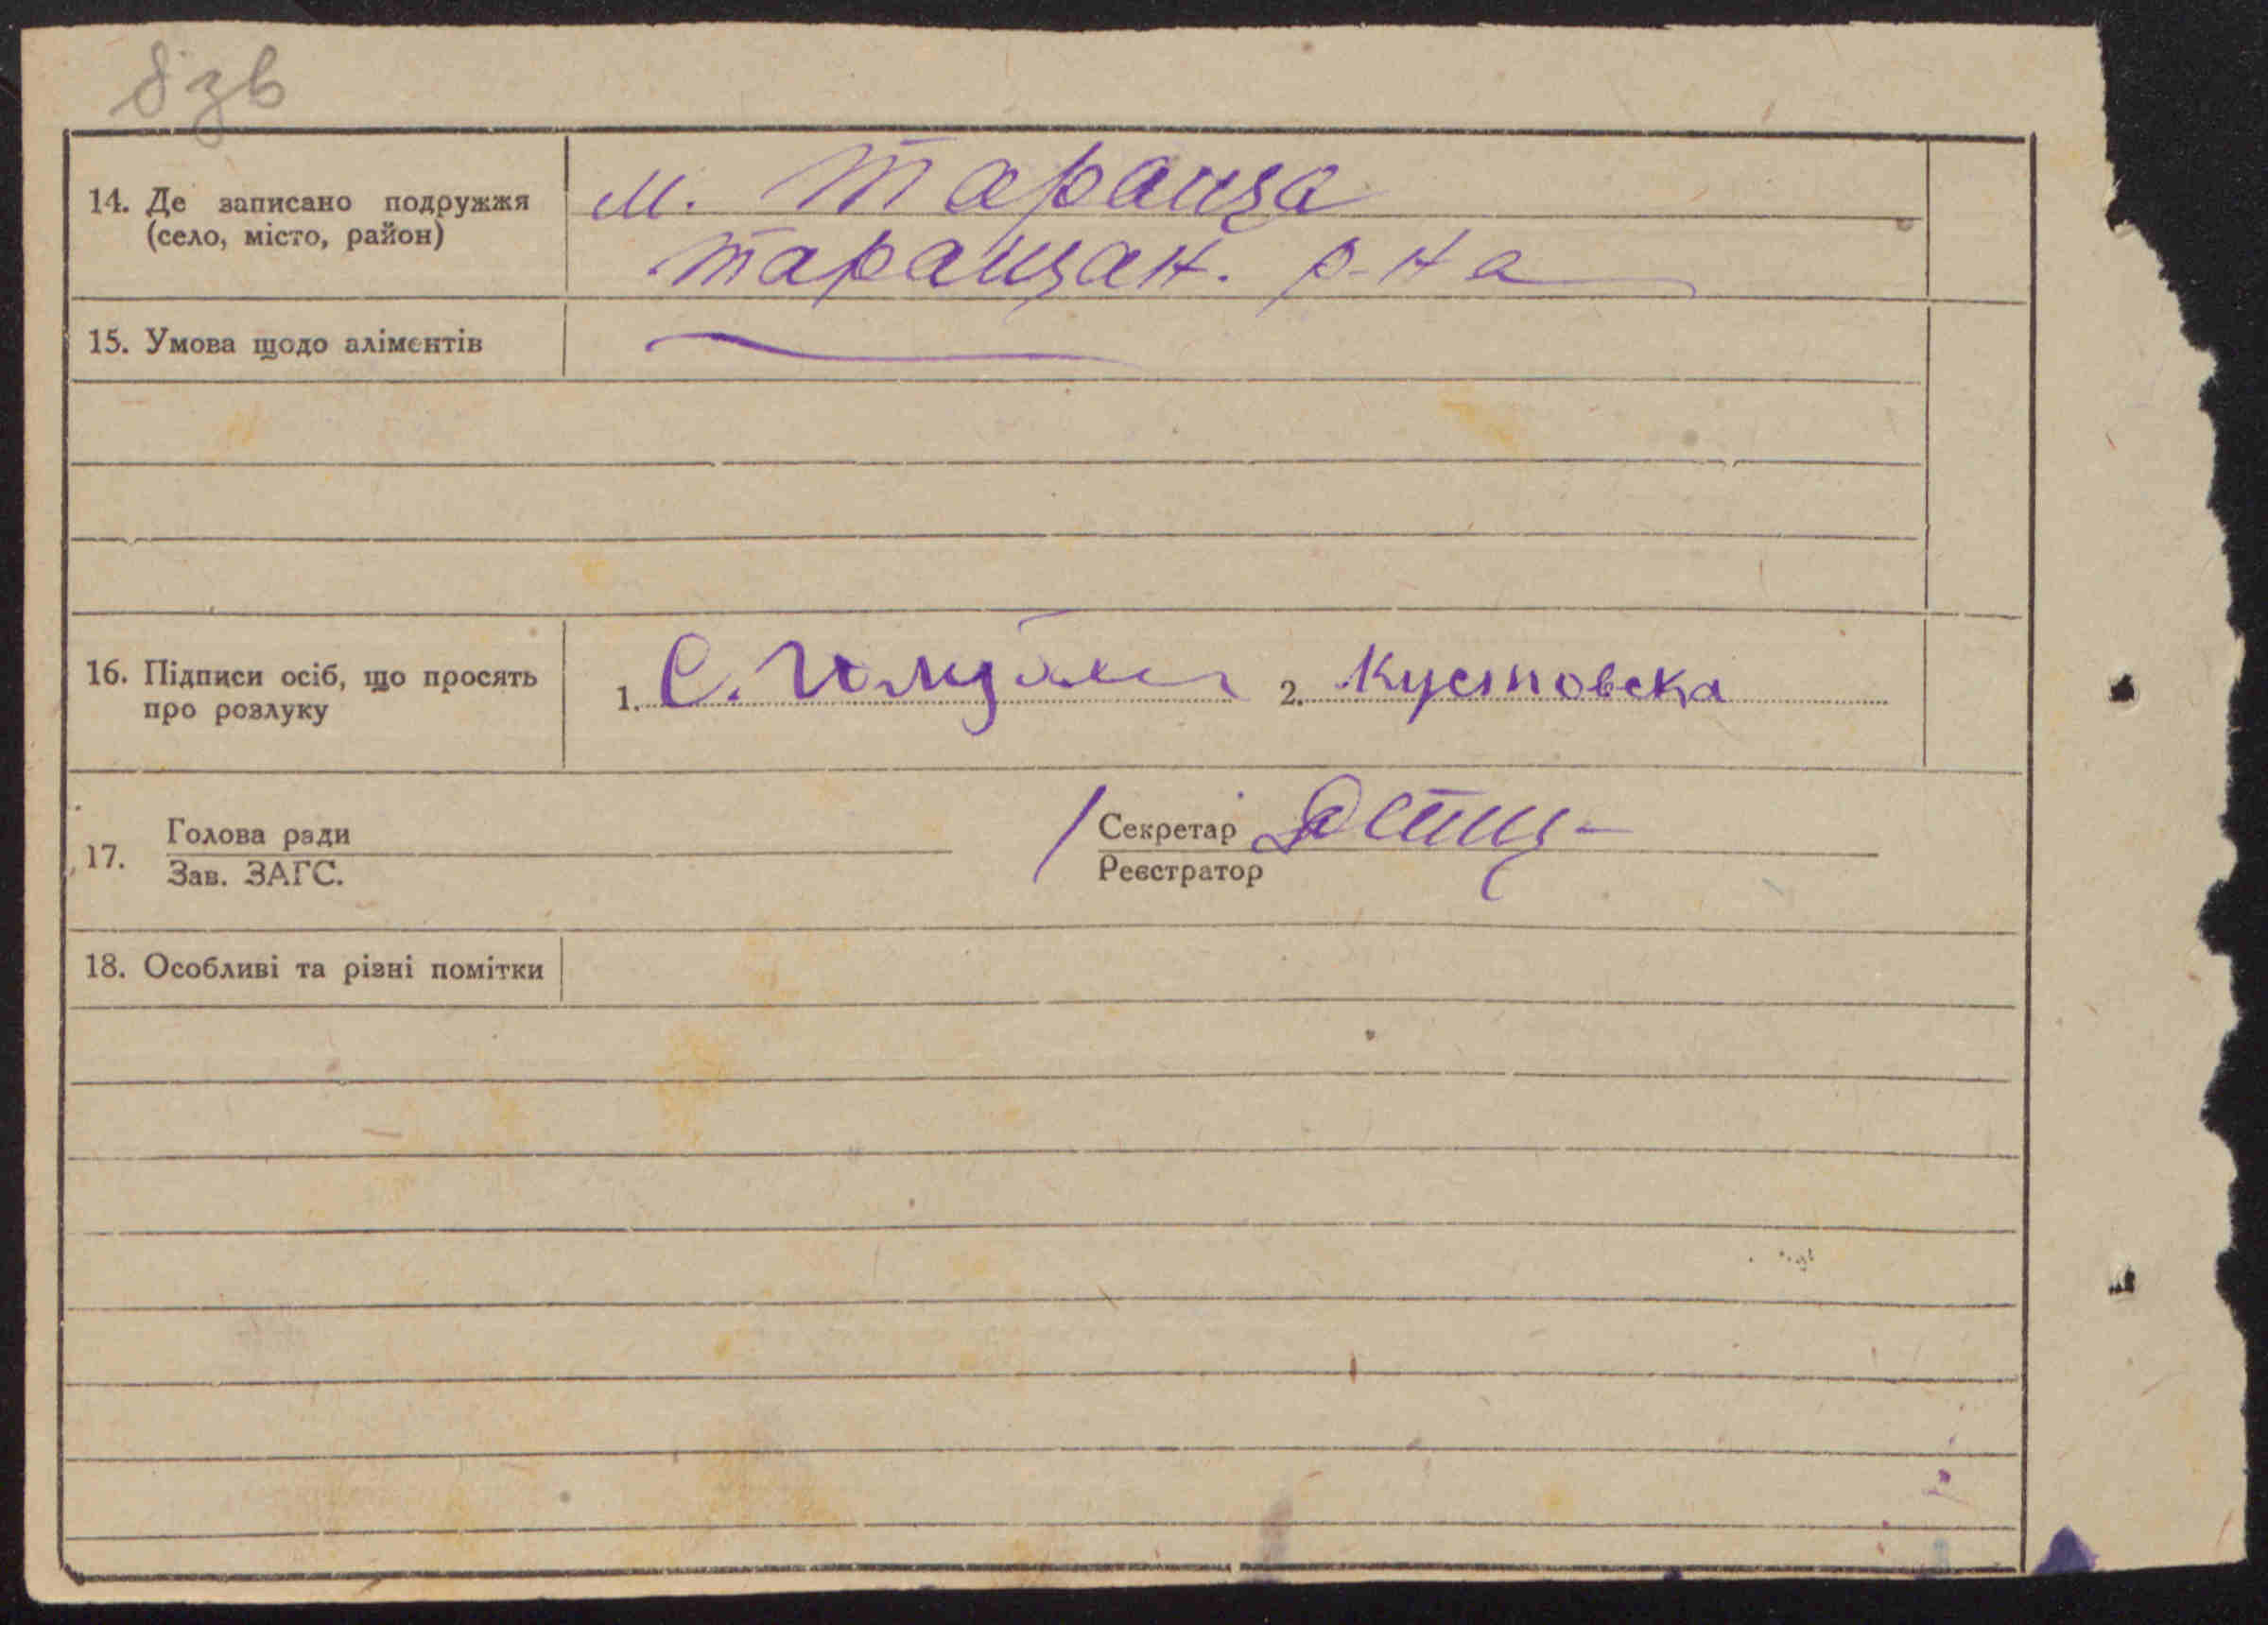 8зв
14. Де записано подружжя
(село, місто, район)
м. Тараща
таращан. р-на
15. Умова щодо аліментів
16. Підписи осіб, що просять
про розлуку
1. С. 2. Кустовска
17. Голова ради
Зав. ЗАГС.
Секретар
Реєстратор
18. Особливі та різні помітки